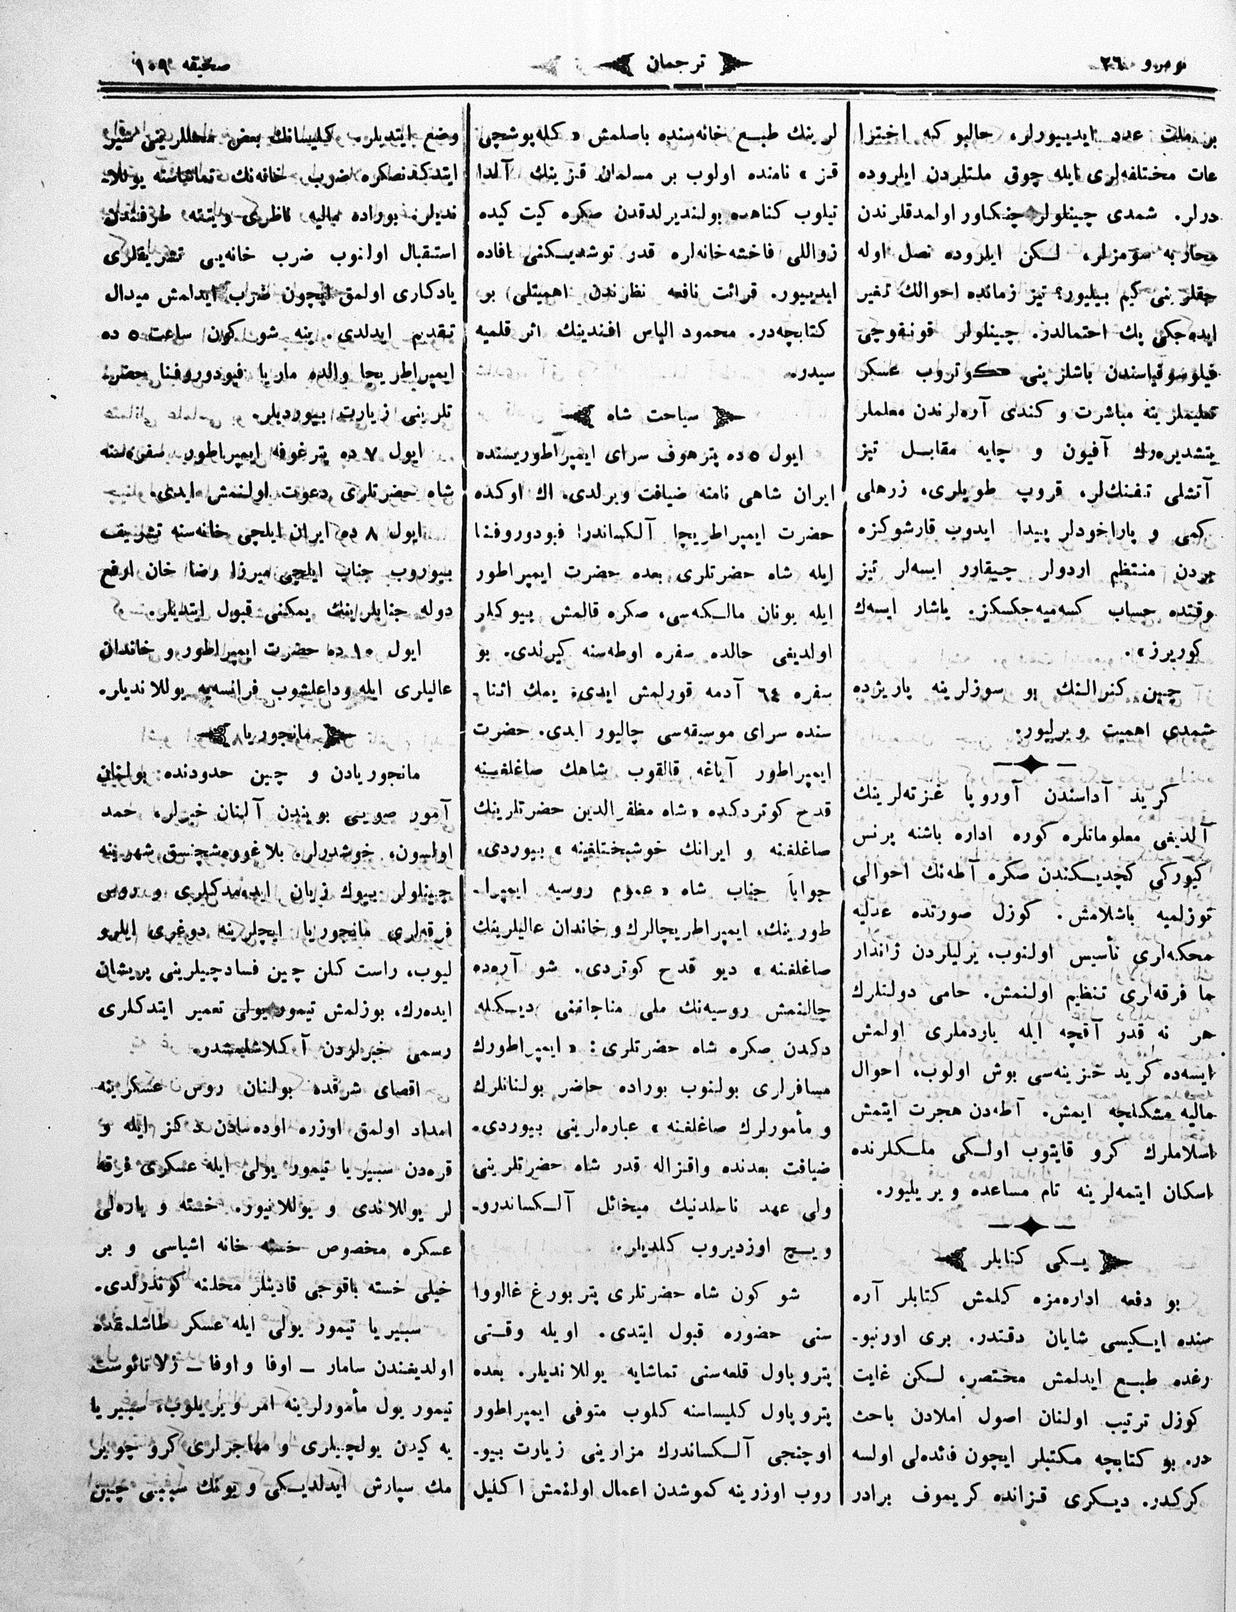 نومرو ٢٦
ترجمان
صحیفه ١٠٩
بر ملت عدد ایدییورلر، حالبوكه اختراـ
عات مختلفه‌لری ایله چوق ملتلردن ایلروده
درلر. شمدی چینلولر جنكاور اولمدقلرندن
محاربه سومزلر، لـكن ایلروده نصل اوله
جقلرینی كیم بیلیور؟ تیز زمانده احوالك تغیر
ایده‌جكی پك احتمالدر. چینلولر قونفوچی
فیلوسوفیاسندن باشلرینی كوتروب عسكر
تعلیملرینه مباشرت و كندی آره‌لرندن معلملر
یتشدیره‌رك آفیون و چایه مقابـل تیز
آتشلی تفنك‌لر، قروپ طوپلری، زرهلی
كمی و پاراخودلر پیدا ایدوب قارشوكزه
بردن منتظم اردولر چیقارو ایسه‌لر تیز
وقتده حساب كسه‌میه‌جكسكز. یاشار ایسه‌ك
كوریرز».
چین كنرالنك بو سوزلرینه پاریژده
شمدی اهمیت ویرلیور.
كرید آداسندن آوروپا غزته‌لرینك
آلدیغی معلوماتلره كوره اداره باشنه پرنس
كیوركی كچدیـكندن صكره آطه‌نك احوالی
توزلمیه باشلامش. كوزل صورتده عدلیه
محكه‌لری تأسیس اولنوب، یرلیلردن ژاندار
ما فرقه‌لری تنظیم اولنمش. حامی دولتلرك
هر نه قدر آقچه ایله یاردملری اولمش
ایسه‌ده كرید خزینه‌سی بوش اولوب، احوال
مالیه مشكلچه ایمش. آطه‌دن هجرت ایتمش
اسلاملرك كرو قایتوب اولـكی ملـكلرنده
اسكان ایتمه‌لرینه تام مساعده ویریلیور.
یـكی كتابلر
بو دفعه اداره‌مزه كلمش كتابلر آره
سنده ایـكیسی شایان دقتدر. بری اورنبوـ
رغده طبـع ایدلمش مختصر، لـكن غایت
كوزل ترتیب اولنان اصول املادن باحث
در. بو كتابچه مكتبلر ایچون فائده‌لی اولسه
كركدر. دیـكری قزانده كریموف برادر
لرینك طبـع خانه‌سنده باصلمش «كله‌پوشچی
قز» نامنده اولوب بر مسلمان قزینك آلدا
تیلوب كناهه بولندیرلدقدن صكره كیت كیده
زواللی فاخشه‌خانه‌لره قدر توشدیـكنی افاده
ایدییور. قرائت نافعه نظرندن اهمیتلی بر
كتابچه‌در. محمود الیاس افندینك اثر قلمیه
سیدر.
سیاحت شاه
ایول ٥ده پترهوف سرای ایمپراطوریسنده
ایران شاهی نامنه ضیافت ویرلدی. اك اوكده
حضرت ایمپراطریچا آلكساندرا فیودوروفنا
ایله شاه حضرتلری بعده حضرت ایمپراطور
ایله یونان مالـكه‌سی، صكره قالمش بیوكلر
اولدیغی حالده سفره اوطه‌سنه كیرلدی. بو
سفره ٦٤ آدمه قورلمش ایدی. یمك اثناـ
سنده سرای موسیقه‌سی چالیور ایدی. حضرت
ایمپراطور آیاغه قالقوب شاهك صاغلغینه
قدح كوتردكده «شاه مظفرالدین حضرتلرینك
صاغلغنه و ایرانك خوشبختلغینه» بیوردی.
جواباً جناب شاه «عموم روسیه ایمپراـ
طورینك، ایمپراطریچالرك و خاندان عالیلرینك
صاغلغنه» دیو قدح كوتردی. شو آره‌ده
چالنمش روسیه‌نك ملی مناجاتنی دیـكله
دكدن صكره شاه حضرتلری: «ایمپراطورك
مسافرلری بولنوب بوراده حاضر بولنانلرك
و مأمورلرك صاغلغنه» عباره‌لرینی بیوردی.
ضیافت بعدنده واقزاله قدر شاه حضرتلرینی
ولی عهد ناسلدنیك میخائل آلـكساندروـ
ویـچ اوزدیروب كلدیلر.
شو كون شاه حضرتلری پتربورغ غالووا
سنی حضوره قبول ایتدی. اویله وقـتی
پتروپاول قلعه‌سنی تماشایه یوللاندیلر. بعده
پتروپاول كلیساسنه كلوب متوفی ایمپراطور
اوچنجی آلـكساندرك مزارینی زیارت بیوـ
روب اوزرینه كموشدن اعمال اولنمش اكلیل
وضع ایتدیلر. كلیسانك بعض محللرینی سیر
ایتدكدنصكره ضرب خانه‌نك تماشاسنه یوللاـ
ندیلر. بوراده مالیه ناظری ویتته طرفندن
استقبال اولنوب ضرب خانه‌یی تشریفلری
یادكاری اولمق ایچون ضرب ایدلمش میدال
تقدیم ایدلدی. ینه شو كون ساعت ٥ ده
ایمپراطریچا والده ماریا فیودوروفنا حضرـ
تلرینی زیارت بیوردیلر.
ایول ٧ ده پترغوفه ایمپراطور سفره‌سنه
شاه حضرتلری دعوت اولنمش ایدی.
ایول ٨ ده ایران ایلچی خانه‌سنه تشریف
بیوروب جناب ایلچی میرزا رضا خان ارفع
دوله جنابلرینك یمكنی قبول ایتدیلر.
ایول ١٠ ده حضرت ایمپراطور و خاندان
عالیلری ایله وداعلشوب فرانسه‌یه یوللاندیلر.
مانجوریا
مانجوریادن و چین حدودنده بولنان
آمور صویی بویندن آلنان خبرلر، حمد
اولسون، خوشدرلر. بلاغووه‌شچنسق شهرینه
چینلولر بیوك زیان ایده‌مدكلری و روس
فرقه‌لری مانجوریا ایچلرینه دوغری ایلرو
لیوب، راست كلن چین فسادچیلرینی پریشان
ایده‌رك، بوزلمش تیمور یولی تعمیر ایتدكلری
رسمی خبرلردن آكلاشلمشدر.
اقصای شرقده بولنان روس عسكرینه
امداد اولمق اوزره اوده‌سادن دكز ایله و
قره‌دن سیبیریا تیمور یولی ایله عسكری فرقه
لر یوللاندی و یوللانیور. خسته و یاره‌لی
عسكره مخصوص خسته خانه اشیاسی و بر
خیلی خسته باقوجی قادینلر محلنه كوندرلدی.
سیبیریا تیمور یولی ایله عسكر طاشلمقده
اولدیغندن سامار ــ اوفا و اوفا ــ زلاتائوست
تیمور یول مأمورلرینه امر ویریلوب، سیبیریا
یه كیدن یولچیلری و مهاجرلری كرو چویرـ
مك سپارش ایدلدیـكی و یونك سببی چین